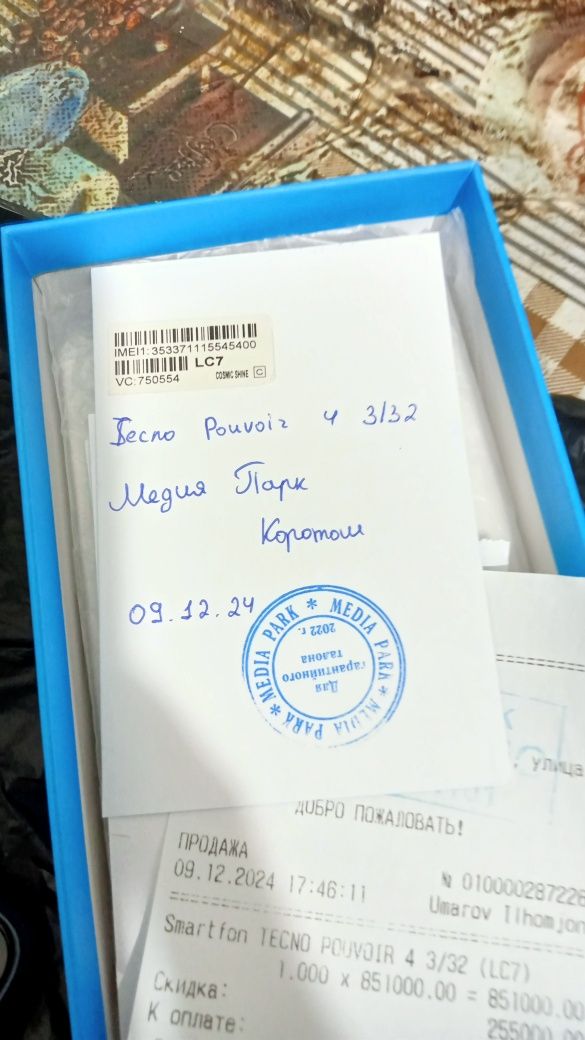 IMEI1:353371115545400
LC7
VC:750554
COSMIC SHINE C
Tecno Pouvoir 4 3/32
Медия Парк
Коротош
09.12.24
MEDIA PARK * MEDIA PARK * MEDIA PARK *
Для
гарантийного
талона
2022 г.
, улица
ДОБРО ПОЖАЛОВАТЬ!
ПРОДАЖА
09.12.2024 17:46:11
№ 010000287226
Umarov Ilhomjon
Smartfon TECNO POUVOIR 4 3/32 (LC7)
1.000 x 851000.00 = 851000.00
Скидка:
К оплате:
255000.00